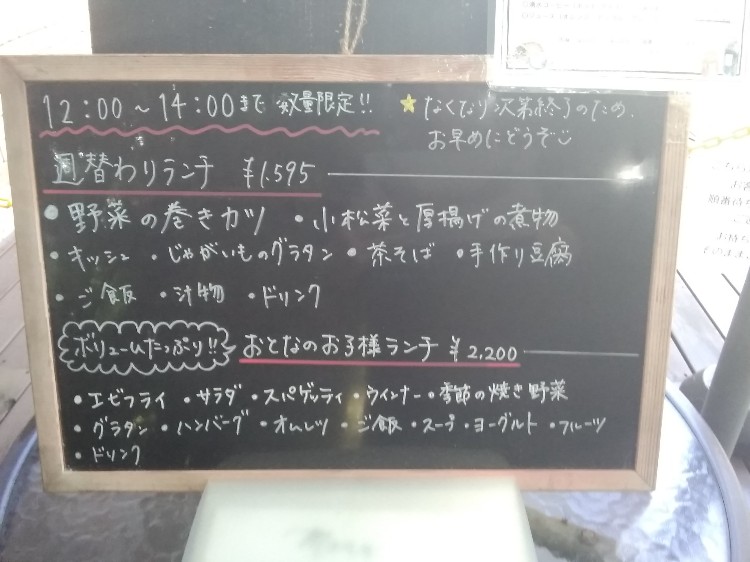 12:00～14:00まで 数量限定!!
★なくなり次第終了のため、
お早めにどうぞ
週替わりランチ ¥1.595
・野菜の巻きカツ ・小松菜と厚揚げの煮物
・キッシュ ・じゃがいものグラタン ・茶そば ・手作り豆腐
・ご飯 ・汁物 ・ドリンク
ボリュームたっぷり!! おとなのお子様ランチ ¥2,200
・エビフライ ・サラダ ・スパゲッティ ・ウインナー ・季節の焼き野菜
・グラタン ・ハンバーグ ・オムレツ ・ご飯 ・スープ ・ヨーグルト ・フルーツ
・ドリンク